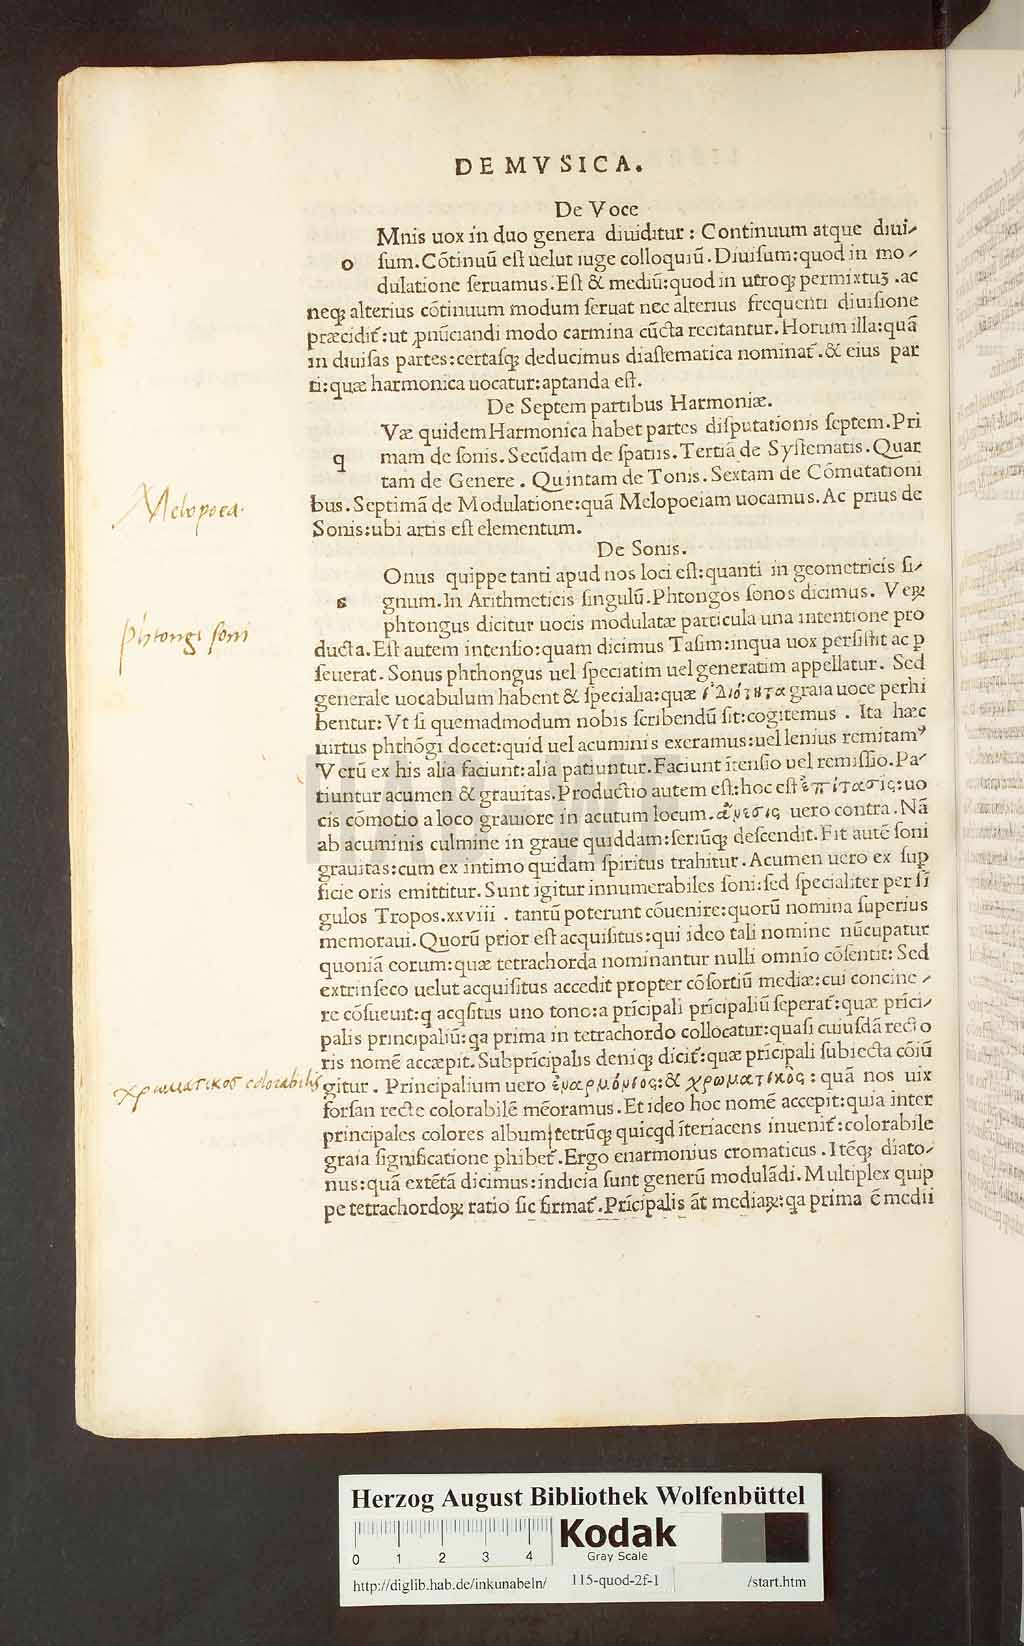 DE MVSICA.
De Voce
Mnis uox in duo genera diuiditur : Continuum atque diui-
o ſum. Cōtinuū eſt uelut iuge colloquiū. Diuiſum: quod in mo-
dulatione ſeruamus. Eſt & mediū: quod in utroqꝫ permixtuꝫ. ac
neqꝫ alterius cōtinuum modum ſeruat nec alterius frequenti diuiſione
præcidit̄: ut ꝓnūciandi modo carmina cūcta recitantur. Horum illa: quā
in diuiſas partes: certaſqꝫ deducimus diaſtematica nominat̄. & eius par
ti: quæ harmonica uocatur: aptanda eſt.
De Septem partibus Harmoniæ.
Væ quidem Harmonica habet partes diſputationis ſeptem. Pri
q mam de ſonis. Secūdam de ſpatiis. Tertiā de Syſtematis. Quar
tam de Genere. Quintam de Tonis. Sextam de Cōmutationi
bus. Septimā de Modulatione: quā Melopoeiam uocamus. Ac prius de
Melopoea.
Sonis: ubi artis eſt elementum.
De Sonis.
Onus quippe tanti apud nos loci eſt: quanti in geometricis ſi-
s gnum. In Arithmeticis ſingulū. Phtongos ſonos dicimus. Veꝝ
phtongus dicitur uocis modulatæ particula una intentione pro
Phtongi soni
ducta. Eſt autem intenſio: quam dicimus Taſim: inqua uox perſiſtit ac ꝑ
ſeuerat. Sonus phthongus uel ſpeciatim uel generatim appellatur. Sed
generale uocabulum habent & ſpecialia: quæ ἰδιότητα graia uoce perhi
bentur: Vt ſi quemadmodum nobis ſcribendū ſit: cogitemus. Ita hæc
uirtus phthōgi docet: quid uel acuminis exeramus: uel lenius remitamꝰ
Verū ex his alia faciunt: alia patiuntur. Faciunt ītenſio uel remiſſio. Pa-
tiuntur acumen & grauitas. Productio autem eſt: hoc eſt ἐπίτασις: uo
cis cōmotio a loco grauiore in acutum locum. ἄνεσις uero contra. Nā
ab acuminis culmine in graue quiddam: ſeriūqꝫ deſcendit. Fit autē ſoni
grauitas: cum ex intimo quidam ſpiritus trahitur. Acumen uero ex ſuꝑ
ficie oris emittitur. Sunt igitur innumerabiles ſoni: ſed ſpecialiter per ſī
gulos Tropos. xxviii. tantū poterunt cōuenire: quorū nomina ſuperius
memoraui. Quorū prior eſt acquiſitus: qui ideo tali nomine nūcupatur
quoniā eorum: quæ tetrachorda nominantur nulli omnio cōſentit: Sed
extrinſeco uelut acquiſitus accedit propter cōſortiū mediæ: cui concine-
re cōſueuit: q acqſitus uno tono: a prīcipali prīcipaliū ſeperat̄: quæ prīci-
palis principaliū: qa prima in tetrachordo collocatur: quaſi cuiuſdā recto
ris nomē accæpit. Subprīcipalis deniqꝫ dicit̄: quæ prīcipali ſubiecta cōiū
χρωματικος colorabilis
gitur. Principalium uero ἐναρμόνιος: & χρωματικὸς: quā nos uix
forſan recte colorabilē mēoramus. Et ideo hoc nomē accepit: quia inter
principales colores album tetrūqꝫ quicqd īteriacens inuenit̄: colorabile
graia ſignificatione ꝑhibet̄. Ergo enarmonius cromaticus. Itēqꝫ diato-
nus: quā extētā dicimus: indicia ſunt generū modulādi. Multiplex quip
pe tetrachordoꝝ ratio ſic firmat̄. Prīcipalis āt mediaꝝ: qa prima ē medii
HAB-WF
Herzog August Bibliothek Wolfenbüttel
0 1 2 3 4
Kodak
Gray Scale
http://diglib.hab.de/inkunabeln/ 115-quod-2f-1 /start.htm